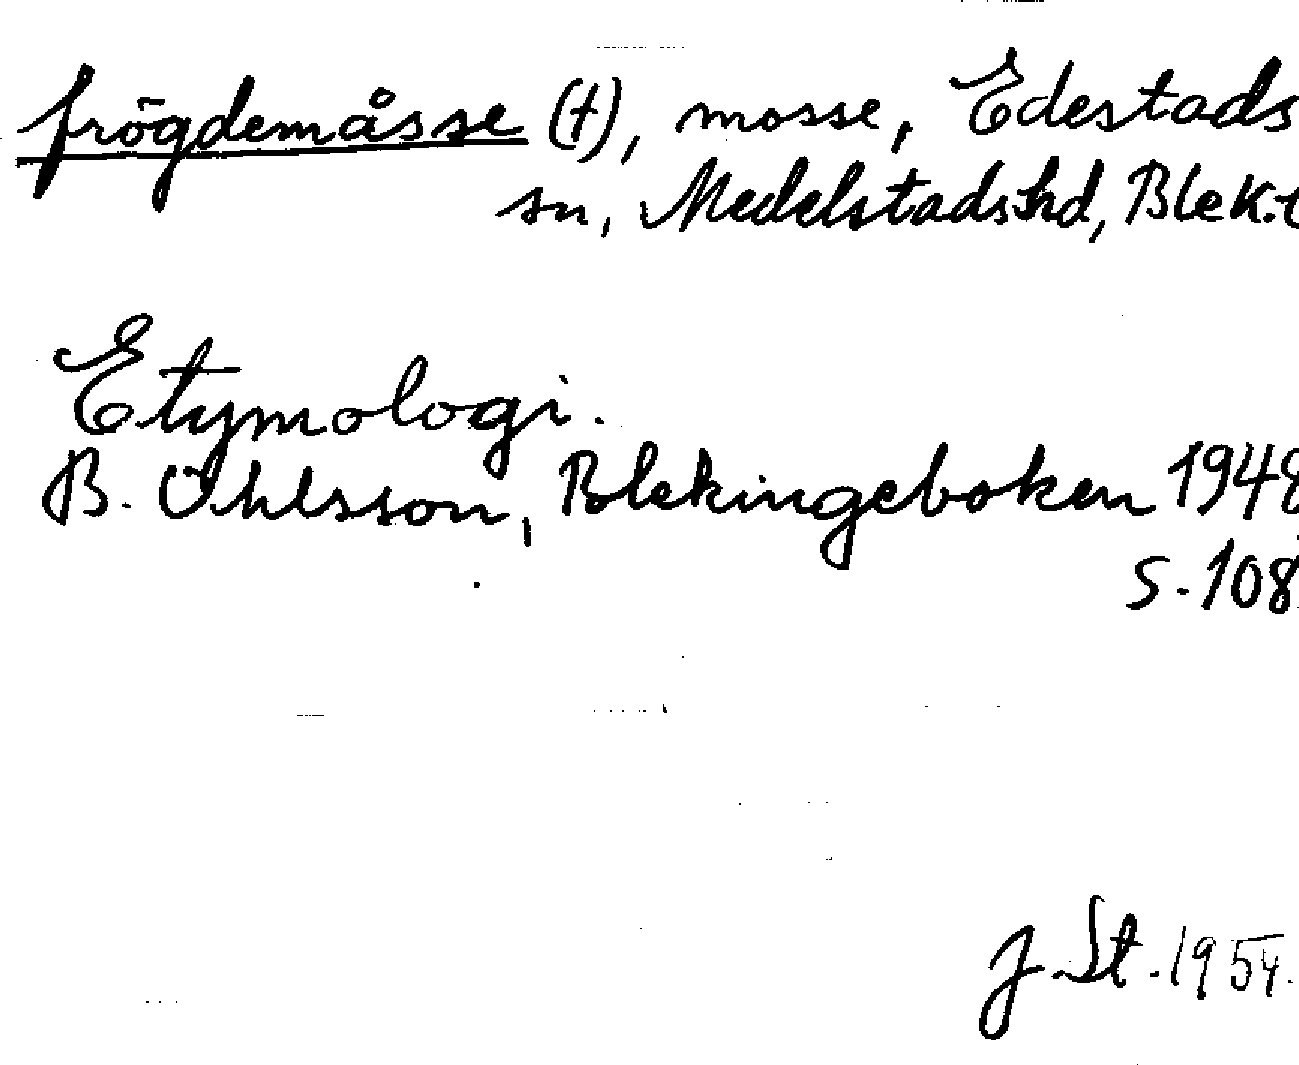 frögdemåsse (t), mosse, Edestads
sn, Medelstads hd, Blek.
Etymologi.
B. Öhlsson, Blekingeboken 1948
s. 108
J. St. 1954.